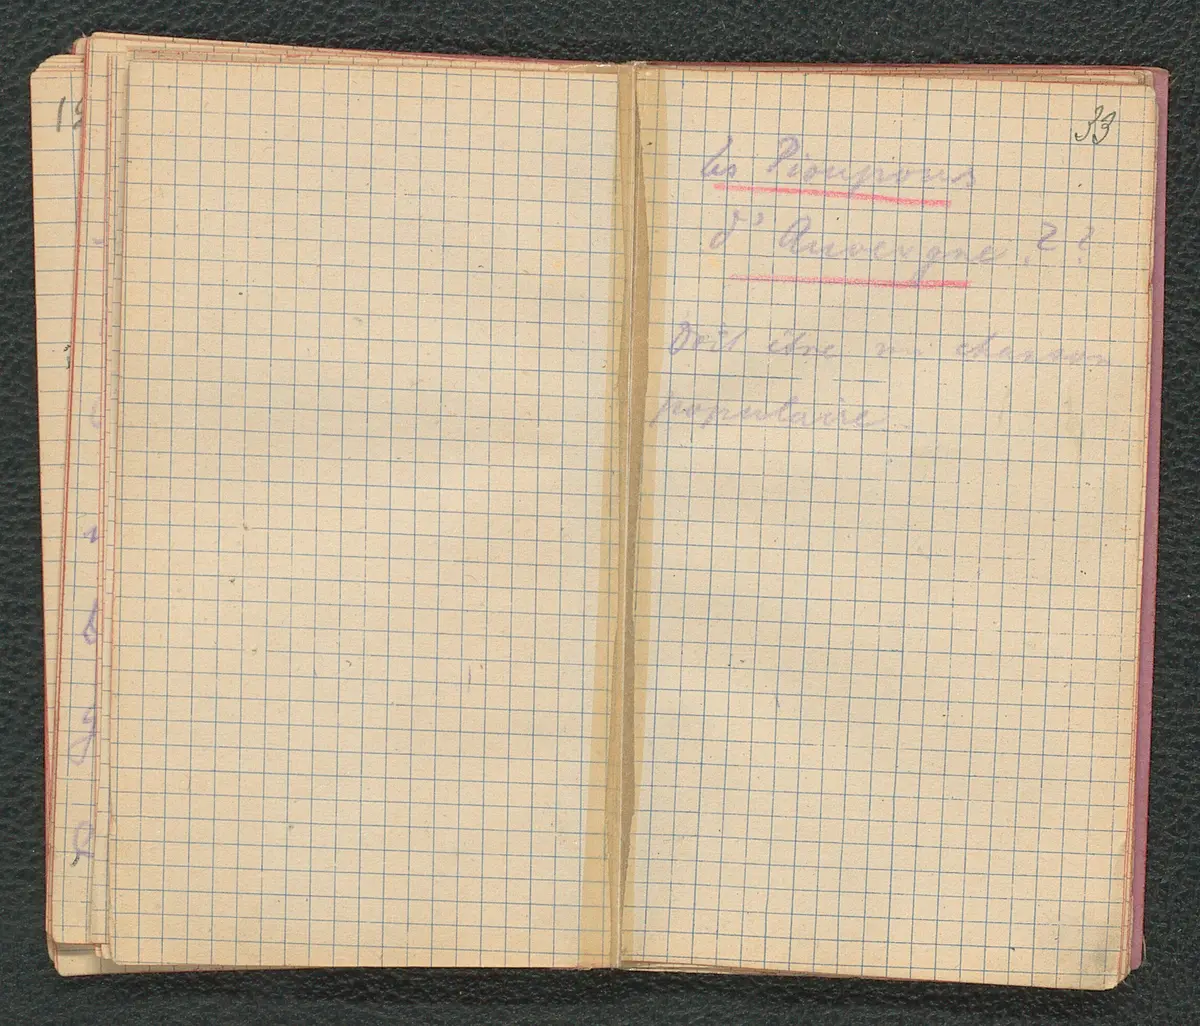 33
Les Pioupious
d'Auvergne ? ?
Doit être un chanson
populaire